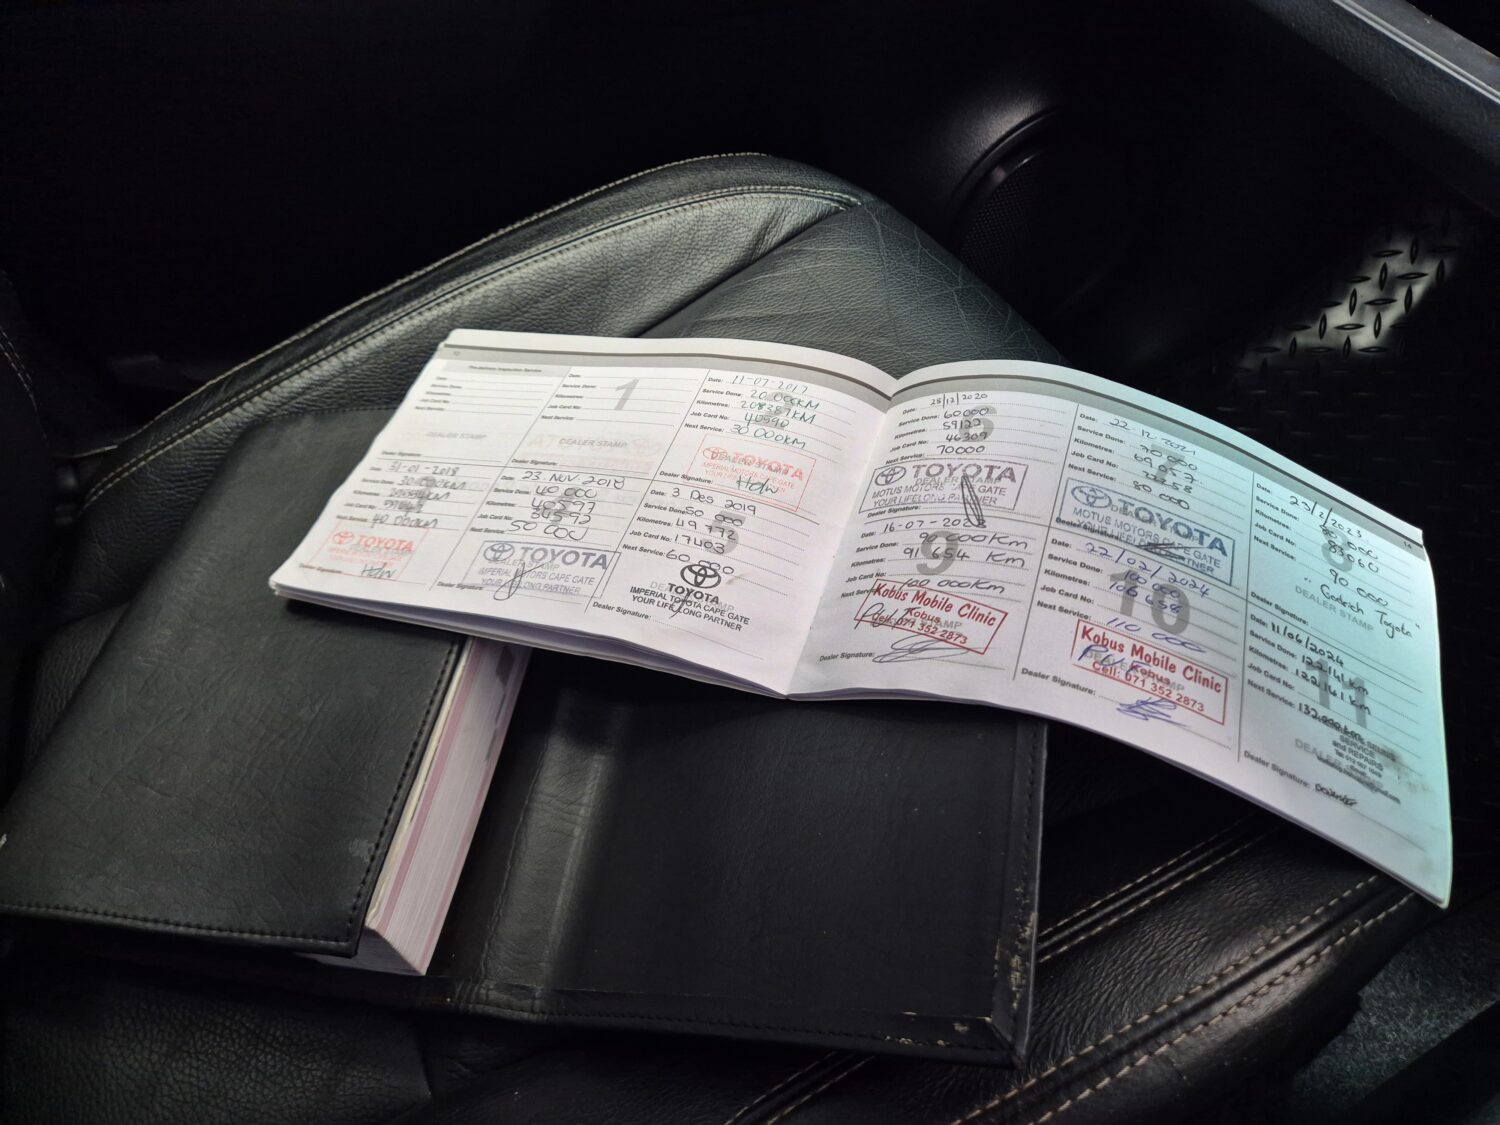 Pre-delivery Inspection Service
Date:
Service Done:
Kilometres:
Job Card No:
Next Service:
DEALER STAMP
Dealer Signature:
1
Date:
Service Done:
Kilometres:
Job Card No:
Next Service:
DEALER STAMP
Dealer Signature:
Date: 11-07-2017
Service Done: 20 000KM
Kilometres:
Job Card No: 40590
Next Service: 30 000KM
TOYOTA
IMPERIAL MOTORS CAPE GATE
Dealer Signature:
Date: 31-01-2018
Service Done: 30 000KM
Kilometres:
Job Card No:
Next Service: 40 000KM
TOYOTA
Dealer Signature:
Date: 23 NOV 2018
Service Done: 40 000
Kilometres:
Job Card No:
Next Service: 50 000
TOYOTA
DEALER STAMP
IMPERIAL MOTORS CAPE GATE
YOUR LIFELONG PARTNER
Dealer Signature:
5
Date: 3 Des 2019
Service Done: 50 000
Kilometres: 49 772
Job Card No: 17403
Next Service: 60 000
TOYOTA
IMPERIAL TOYOTA CAPE GATE
YOUR LIFELONG PARTNER
Dealer Signature:
6
Date: 28/12/2020
Service Done: 60000
Kilometres: 59122
Job Card No: 46309
Next Service: 70000
TOYOTA
MOTUS MOTORS CAPE GATE
YOUR LIFELONG PARTNER
Dealer Signature:
Date: 22-12-2021
Service Done: 70 000
Kilometres: 69 057
Job Card No:
Next Service: 80 000
TOYOTA
MOTUS MOTORS CAPE GATE
YOUR LIFELONG PARTNER
Dealer Signature:
8
Date: 23/2/2023
Service Done: 80 000
Kilometres: 83060
Job Card No:
Next Service: 90 000
DEALER STAMP
" Goodrich Toyota "
Dealer Signature:
9
Date: 16-07-2023
Service Done: 90 000Km
Kilometres: 91 654 Km
Job Card No:
Next Service: 100 000km
Kobus Mobile Clinic
Kobus
Cell: 071 352 2873
Dealer Signature:
10
Date: 22/02/2024
Service Done: 100 000
Kilometres: 106 658
Job Card No:
Next Service: 110 000
Kobus Mobile Clinic
Kobus
Cell: 071 352 2873
Dealer Signature:
11
Date: 11/06/2024
Service Done: 122141km
Kilometres: 122141km
Job Card No:
Next Service: 132,000km
SERVICE
and REPAIRS
Dealer Signature: